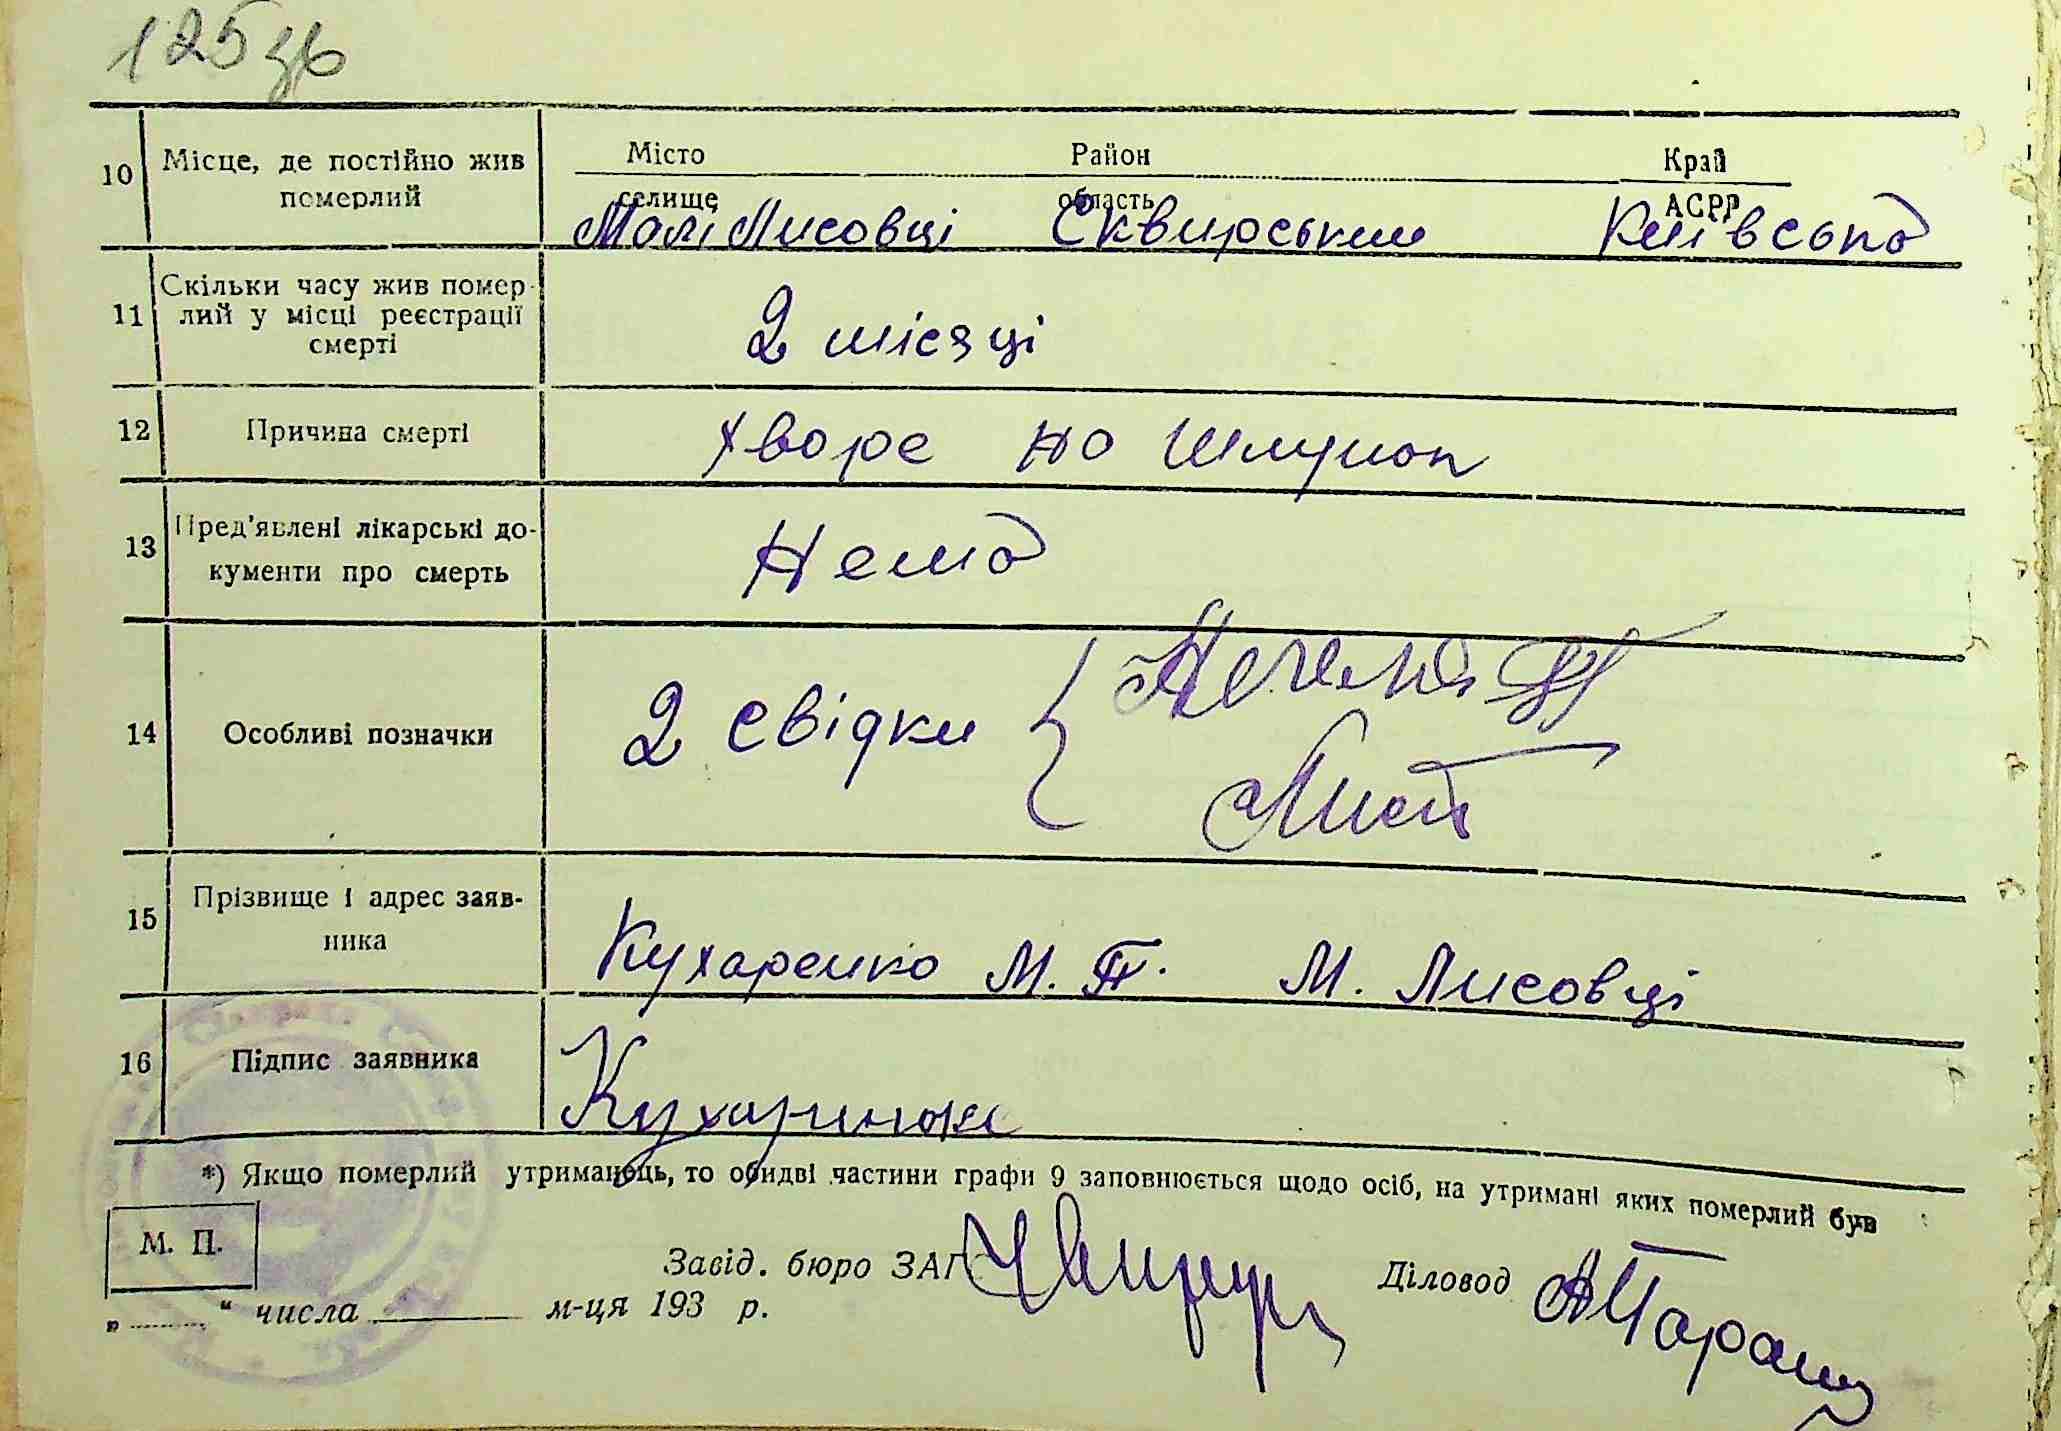 125 зв
10 Місце, де постійно жив померлий
Місто Район Край
селище область АСРР
Малі Лисовці Сквирський Київська
11 Скільки часу жив помер-
лий у місці реєстрації
смерті
2 місяці
12 Причина смерті
хворе на шлунок
13 Пред'явлені лікарські до-
кументи про смерть
Нема
14 Особливі позначки
2 свідки {
15 Прізвище і адрес заяв-
ника
Кухаренко М. П. М. Лисовці
16 Підпис заявника
*) Якщо померлий утриманець, то обидві частини графи 9 заповнюється щодо осіб, на утримані яких померлий був
М. П.
Завід. бюро ЗАГС Діловод
„ “ числа м-ця 193 р.